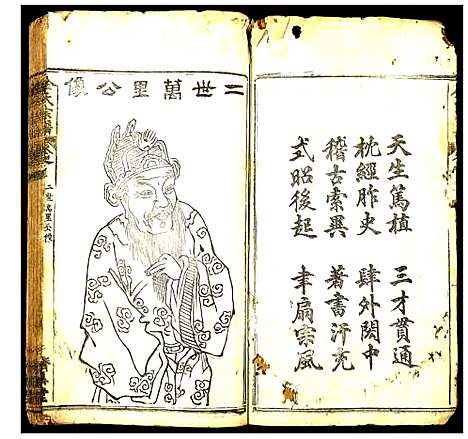 天生篤植 三才貫通
枕經胙史 肆外閎中
稽古索異 著書汗充
式昭後起 聿扇宗風
二世萬里公像
氏宗譜
二世萬里公像